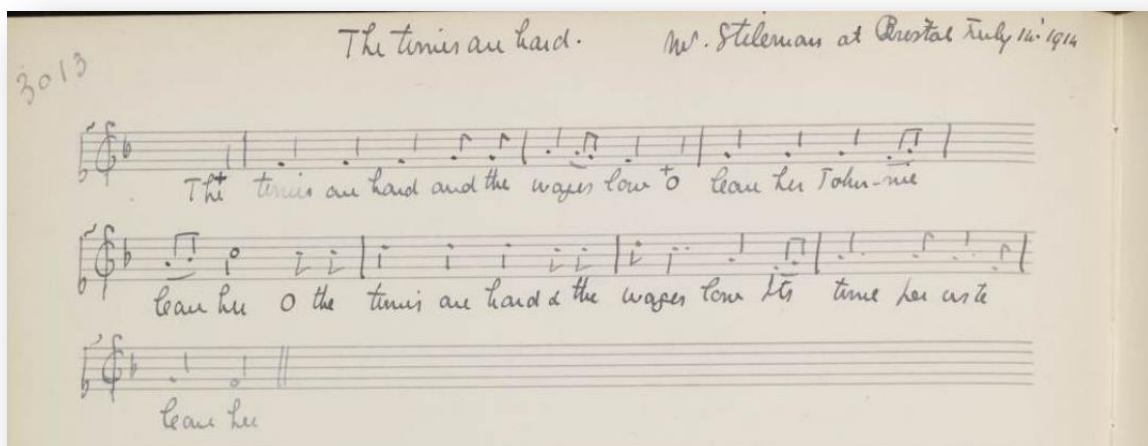 The times are hard. Mr. Stileman at Bristol July 14 1914
3013
The times are hard and the wages low O leave her John-nie
leave her O the times are hard & the wages low Its time for us to
leave her